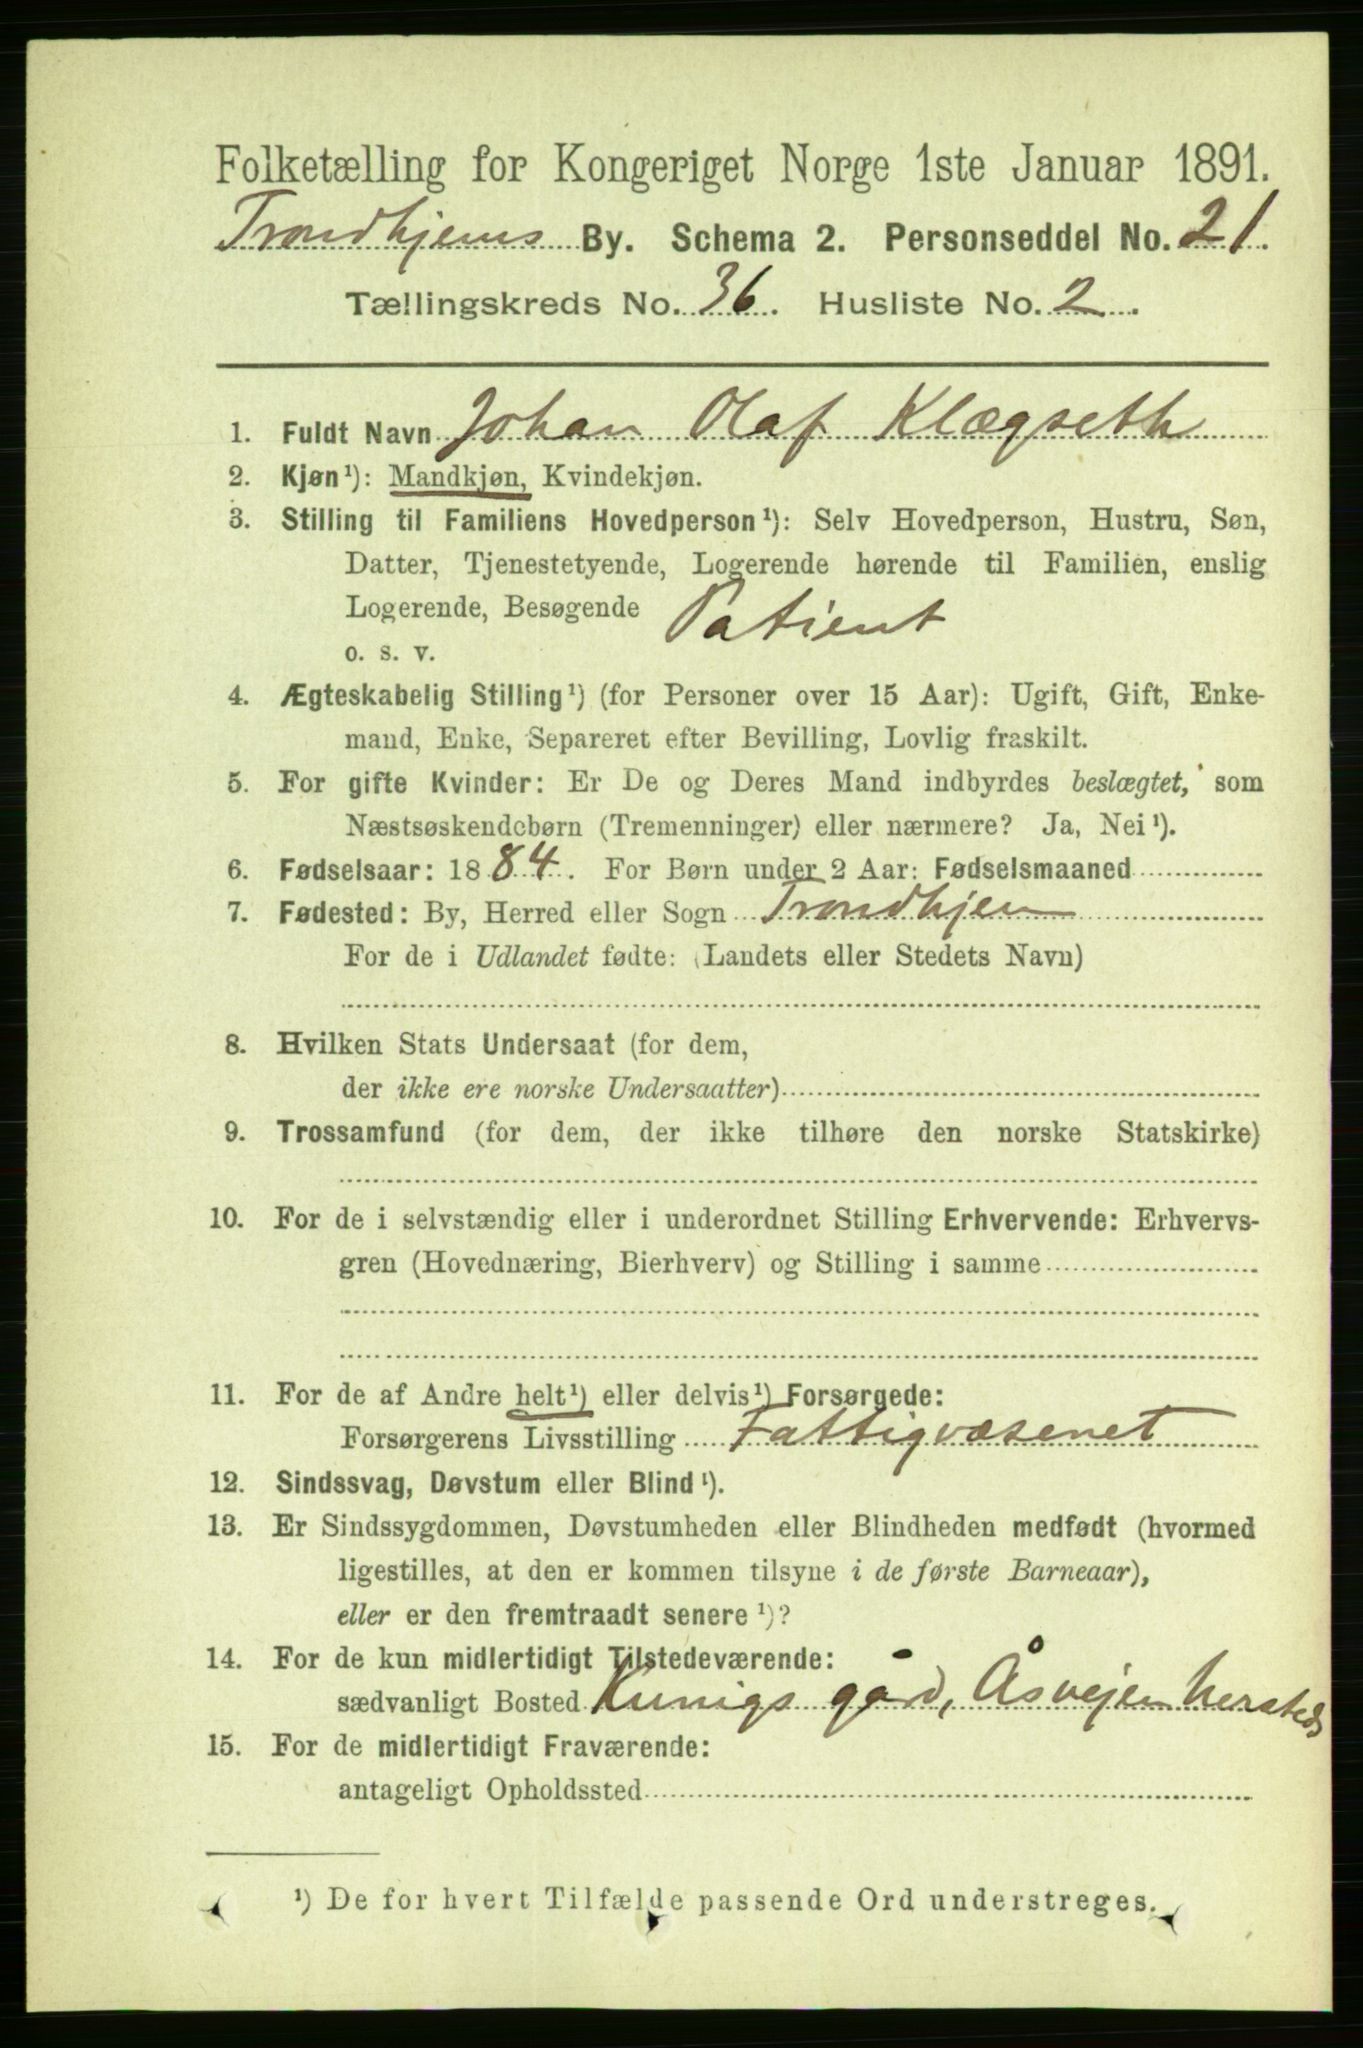 Folketælling for Kongeriget Norge 1ste Januar 1891.
Trondhjems By. Schema 2. Personseddel No. 21.
Tællingskreds No. 36. Husliste No. 2.
1. Fuldt Navn Johan Olaf Klægseth
2. Kjøn¹): Mandkjøn, Kvindekjøn.
3. Stilling til Familiens Hovedperson¹): Selv Hovedperson, Hustru, Søn,
Datter, Tjenestetyende, Logerende hørende til Familien, enslig
Logerende, Besøgende Patient
o. s. v.
4. Ægteskabelig Stilling¹) (for Personer over 15 Aar): Ugift, Gift, Enke-
mand, Enke, Separeret efter Bevilling, Lovlig fraskilt.
5. For gifte Kvinder: Er De og Deres Mand indbyrdes beslægtet, som
Næstsøskendebørn (Tremenninger) eller nærmere? Ja, Nei¹).
6. Fødselsaar: 1884. For Børn under 2 Aar: Fødselsmaaned
7. Fødested: By, Herred eller Sogn Trondhjem
For de i Udlandet fødte: (Landets eller Stedets Navn)
8. Hvilken Stats Undersaat (for dem,
der ikke ere norske Undersaatter)
9. Trossamfund (for dem, der ikke tilhøre den norske Statskirke)
10. For de i selvstændig eller i underordnet Stilling Erhvervende: Erhvervs-
gren (Hovednæring, Bierhverv) og Stilling i samme
11. For de af Andre helt¹) eller delvis¹) Forsørgede:
Forsørgerens Livsstilling Fattigvæsenet
12. Sindssvag, Døvstum eller Blind¹).
13. Er Sindssygdommen, Døvstumheden eller Blindheden medfødt (hvormed
ligestilles, at den er kommen tilsyne i de første Barneaar),
eller er den fremtraadt senere¹)?
14. For de kun midlertidigt Tilstedeværende:
sædvanligt Bosted Kunigs gård, Åsvejen hersteds
15. For de midlertidigt Fraværende:
antageligt Opholdssted
¹) De for hvert Tilfælde passende Ord understreges.